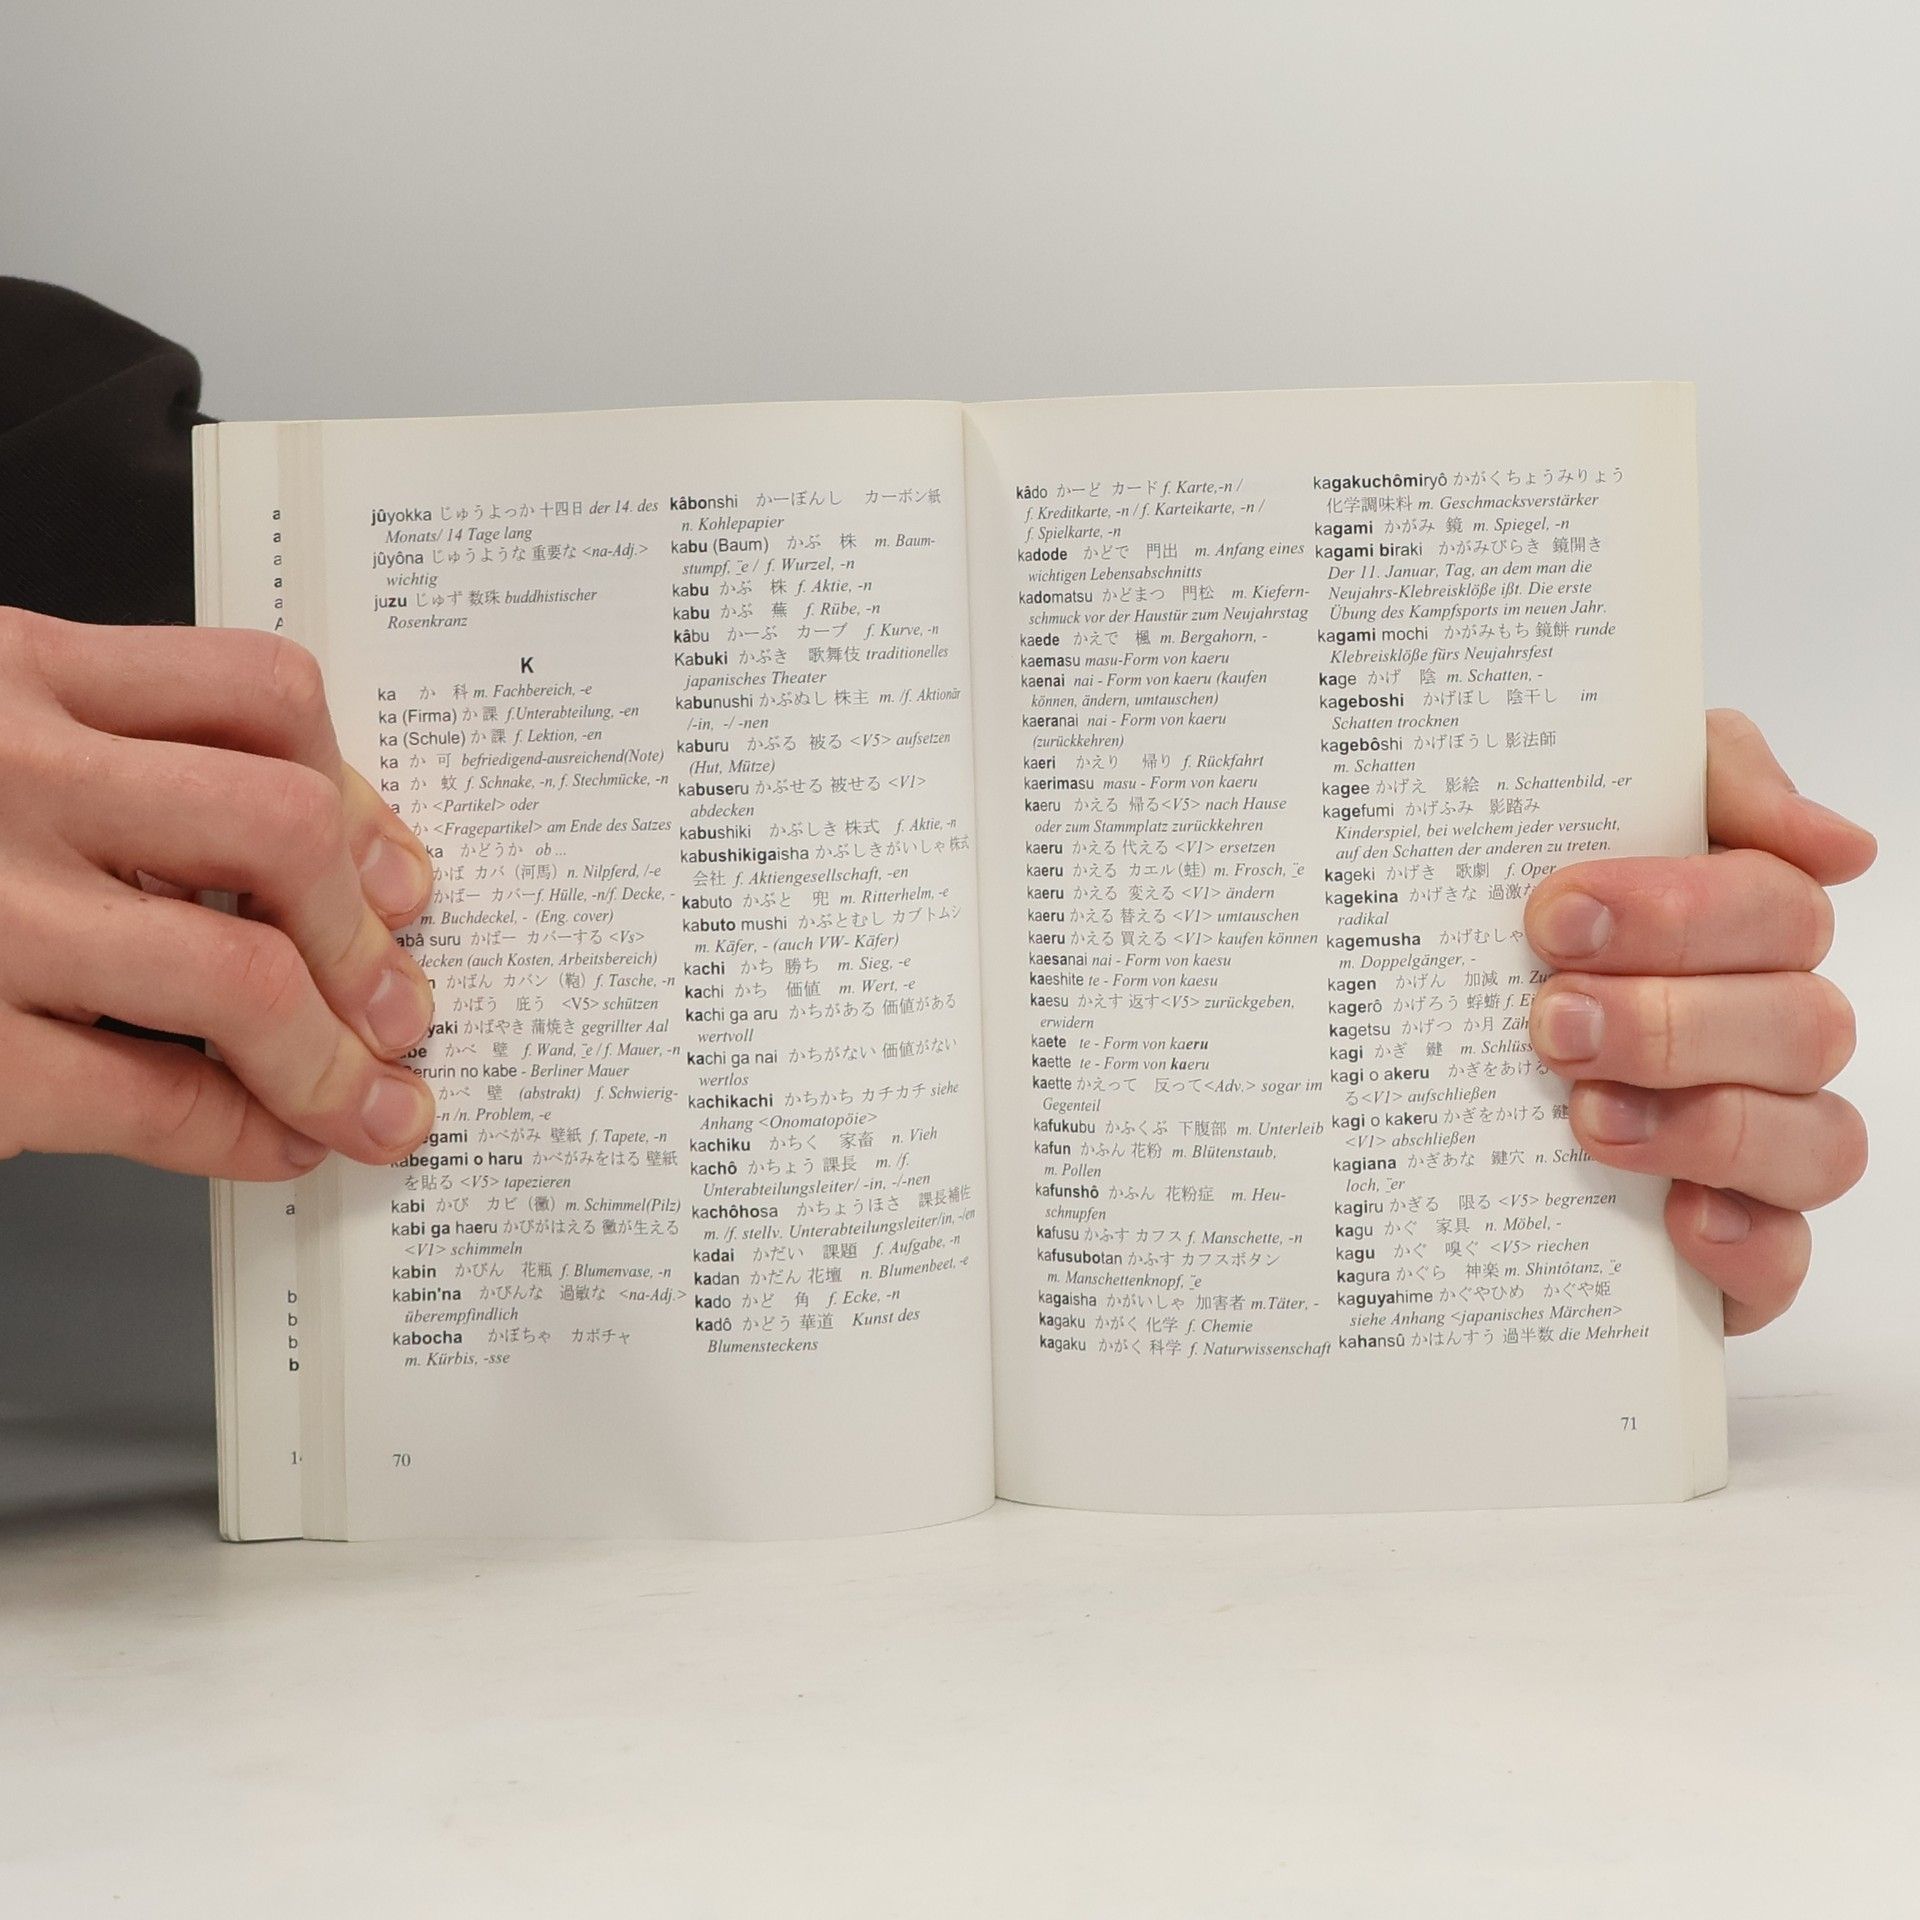 jûyokka じゅうよっか 十四日 der 14. des
Monats/ 14 Tage lang
jûyôna じゅうような 重要な <na-Adj.>
wichtig
juzu じゅず 数珠 buddhistischer
Rosenkranz
K
ka か 科 m. Fachbereich, -e
ka (Firma) か 課 f.Unterabteilung, -en
ka (Schule) か 課 f. Lektion, -en
ka か 可 befriedigend-ausreichend(Note)
ka か 蚊 f. Schnake, -n, f. Stechmücke, -n
か <Partikel> oder
か <Fragepartikel> am Ende des Satzes
ka かどうか ob ...
かば カバ (河馬) n. Nilpferd, /-e
かばー カバー f. Hülle, -n/f. Decke, -
m. Buchdeckel, - (Eng. cover)
suru かばー カバーする <Vs>
decken (auch Kosten, Arbeitsbereich)
かばん カバン (鞄) f. Tasche, -n
かばう 庇う <V5> schützen
yaki かばやき 蒲焼き gegrillter Aal
かべ 壁 f. Wand, ¨e / f. Mauer, -n
Berurin no kabe - Berliner Mauer
かべ 壁 (abstrakt) f. Schwierig-
-n /n. Problem, -e
かべがみ 壁紙 f. Tapete, -n
kabegami o haru かべがみをはる 壁紙
を貼る <V5> tapezieren
kabi かび カビ (黴) m. Schimmel(Pilz)
kabi ga haeru かびがはえる 黴が生える
<V1> schimmeln
kabin かびん 花瓶 f. Blumenvase, -n
kabin'na かびんな 過敏な <na-Adj.>
überempfindlich
kabocha かぼちゃ カボチャ
m. Kürbis, -sse
70
kâbonshi かーぼんし カーボン紙
n. Kohlepapier
kabu (Baum) かぶ 株 m. Baum-
stumpf, ¨e / f. Wurzel, -n
kabu かぶ 株 f. Aktie, -n
kabu かぶ 蕪 f. Rübe, -n
kâbu かーぶ カーブ f. Kurve, -n
Kabuki かぶき 歌舞伎 traditionelles
japanisches Theater
kabunushi かぶぬし 株主 m. /f. Aktionär
/-in, -/ -nen
kaburu かぶる 被る <V5> aufsetzen
(Hut, Mütze)
kabuseru かぶせる 被せる <V1>
abdecken
kabushiki かぶしき 株式 f. Aktie, -n
kabushikigaisha かぶしきがいしゃ 株式
会社 f. Aktiengesellschaft, -en
kabuto かぶと 兜 m. Ritterhelm, -e
kabuto mushi かぶとむし カブトムシ
m. Käfer, - (auch VW- Käfer)
kachi かち 勝ち m. Sieg, -e
kachi かち 価値 m. Wert, -e
kachi ga aru かちがある 価値がある
wertvoll
kachi ga nai かちがない 価値がない
wertlos
kachikachi かちかち カチカチ siehe
Anhang <Onomatopöie>
kachiku かちく 家畜 n. Vieh
kachô かちょう 課長 m. /f.
Unterabteilungsleiter/ -in, -/-nen
kachôhosa かちょうほさ 課長補佐
m. /f. stellv. Unterabteilungsleiter/in, -/en
kadai かだい 課題 f. Aufgabe, -n
kadan かだん 花壇 n. Blumenbeet, -e
kado かど 角 f. Ecke, -n
kadô かどう 華道 Kunst des
Blumensteckens
kâdo かーど カード f. Karte,-n /
f. Kreditkarte, -n / f. Karteikarte, -n /
f. Spielkarte, -n
kadode かどで 門出 m. Anfang eines
wichtigen Lebensabschnitts
kadomatsu かどまつ 門松 m. Kiefern-
schmuck vor der Haustür zum Neujahrstag
kaede かえで 楓 m. Bergahorn, -
kaemasu masu-Form von kaeru
kaenai nai - Form von kaeru (kaufen
können, ändern, umtauschen)
kaeranai nai - Form von kaeru
(zurückkehren)
kaeri かえり 帰り f. Rückfahrt
kaerimasu masu - Form von kaeru
kaeru かえる 帰る<V5> nach Hause
oder zum Stammplatz zurückkehren
kaeru かえる 代える <V1> ersetzen
kaeru かえる カエル (蛙) m. Frosch, ¨e
kaeru かえる 変える <V1> ändern
kaeru かえる 替える <V1> umtauschen
kaeru かえる 買える <V1> kaufen können
kaesanai nai - Form von kaesu
kaeshite te - Form von kaesu
kaesu かえす 返す<V5> zurückgeben,
erwidern
kaete te - Form von kaeru
kaette te - Form von kaeru
kaette かえって 反って<Adv.> sogar im
Gegenteil
kafukubu かふくぶ 下腹部 m. Unterleib
kafun かふん 花粉 m. Blütenstaub,
m. Pollen
kafunshô かふん 花粉症 m. Heu-
schnupfen
kafusu かふす カフス f. Manschette, -n
kafusubotan かふす カフスボタン
m. Manschettenknopf, ¨e
kagaisha かがいしゃ 加害者 m.Täter, -
kagaku かがく 化学 f. Chemie
kagaku かがく 科学 f. Naturwissenschaft
kagakuchômiryô かがくちょうみりょう
化学調味料 m. Geschmacksverstärker
kagami かがみ 鏡 m. Spiegel, -n
kagami biraki かがみびらき 鏡開き
Der 11. Januar, Tag, an dem man die
Neujahrs-Klebreisklöße ißt. Die erste
Übung des Kampfsports im neuen Jahr.
kagami mochi かがみもち 鏡餅 runde
Klebreisklöße fürs Neujahrsfest
kage かげ 陰 m. Schatten, -
kageboshi かげぼし 陰干し im
Schatten trocknen
kagebôshi かげぼうし 影法師
m. Schatten
kagee かげえ 影絵 n. Schattenbild, -er
kagefumi かげふみ 影踏み
Kinderspiel, bei welchem jeder versucht,
auf den Schatten der anderen zu treten.
kageki かげき 歌劇 f. Oper
kagekina かげきな 過激な
radikal
kagemusha かげむしゃ
m. Doppelgänger, -
kagen かげん 加減 m.
kagerô かげろう 蜉蝣 f.
kagetsu かげつ か月
kagi かぎ 鍵 m.
kagi o akeru かぎをあける
る<V1> aufschließen
kagi o kakeru かぎをかける 鍵
<V1> abschließen
kagiana かぎあな 鍵穴 n.
loch, ¨er
kagiru かぎる 限る <V5> begrenzen
kagu かぐ 家具 n. Möbel, -
kagu かぐ 嗅ぐ <V5> riechen
kagura かぐら 神楽 m. Shintôtanz, ¨e
kaguyahime かぐやひめ かぐや姫
siehe Anhang <japanisches Märchen>
kahansû かはんすう 過半数 die Mehrheit
71